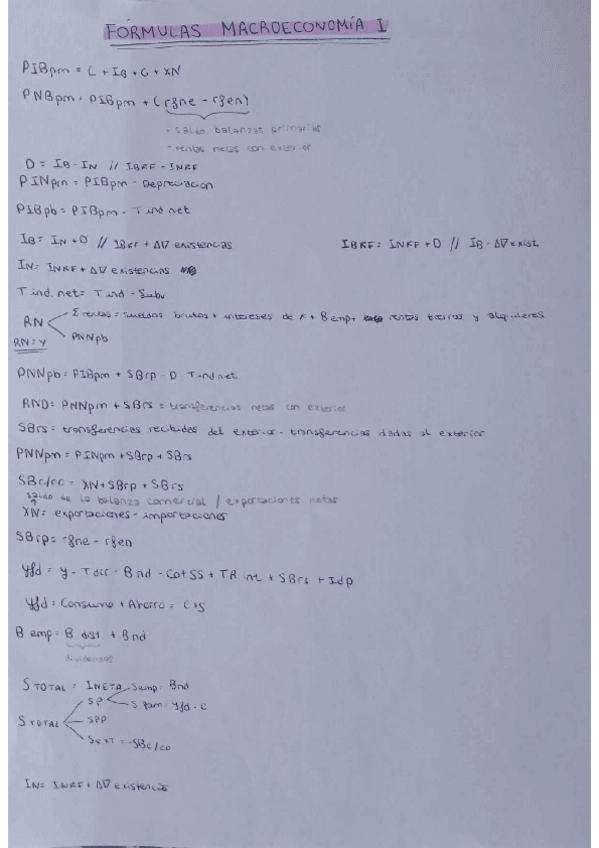 FÓRMULAS MACROECONOMÍA I
PIBpm = C + IB + G + XN
PNBpm = PIBpm + (rfne - rfen)
- saldo balanzas primarias
- rentas netas con exterior
D = IB - IN // IBKF - INKF
PINpm = PIBpm - Depreciacion
PIBpb = PIBpm - T ind net
IB = IN + D // IBKF + ΔV existencias IBKF = INKF + D // IB - ΔV exist.
IN = INKF + ΔV existencias
T ind. net = T ind - Subv
Σ rentas = sueldos brutos + intereses de K + B emp + rentas tierras y alquileres
RN
RN = Y PNNpb
PNNpb = PIBpm + SBrp - D T ind net
RND = PNNpm + SBrs = transferencias netas con exterior
SBrs = transferencias recibidas del exterior - transferencias dadas al exterior
PNNpm = PINpm + SBrp + SBrs
SBc/cc = XN + SBrp + SBrs
saldo de la balanza comercial / exportaciones netas
XN = exportaciones - importaciones
SBrp = rfne - rfen
Yfd = Y - T dir - Bnd - Cot SS + TR int + SBrs + Idp
Yfd = Consumo + Ahorro = C + S
B emp = B dist + Bnd
dividendos
S TOTAL = INETA S emp = Bnd
SP S fam = Yfd - C
S TOTAL SPP
S ext = -SBc/cc
IN = INKF + ΔV existencias